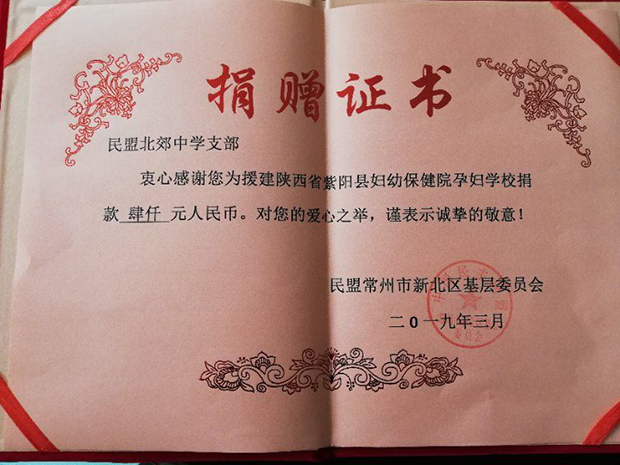 捐赠证书
民盟北郊中学支部
衷心感谢您为援建陕西省紫阳县妇幼保健院孕妇学校捐
款 肆仟 元人民币。对您的爱心之举，谨表示诚挚的敬意！
民盟常州市新北区基层委员会
二0一九年三月